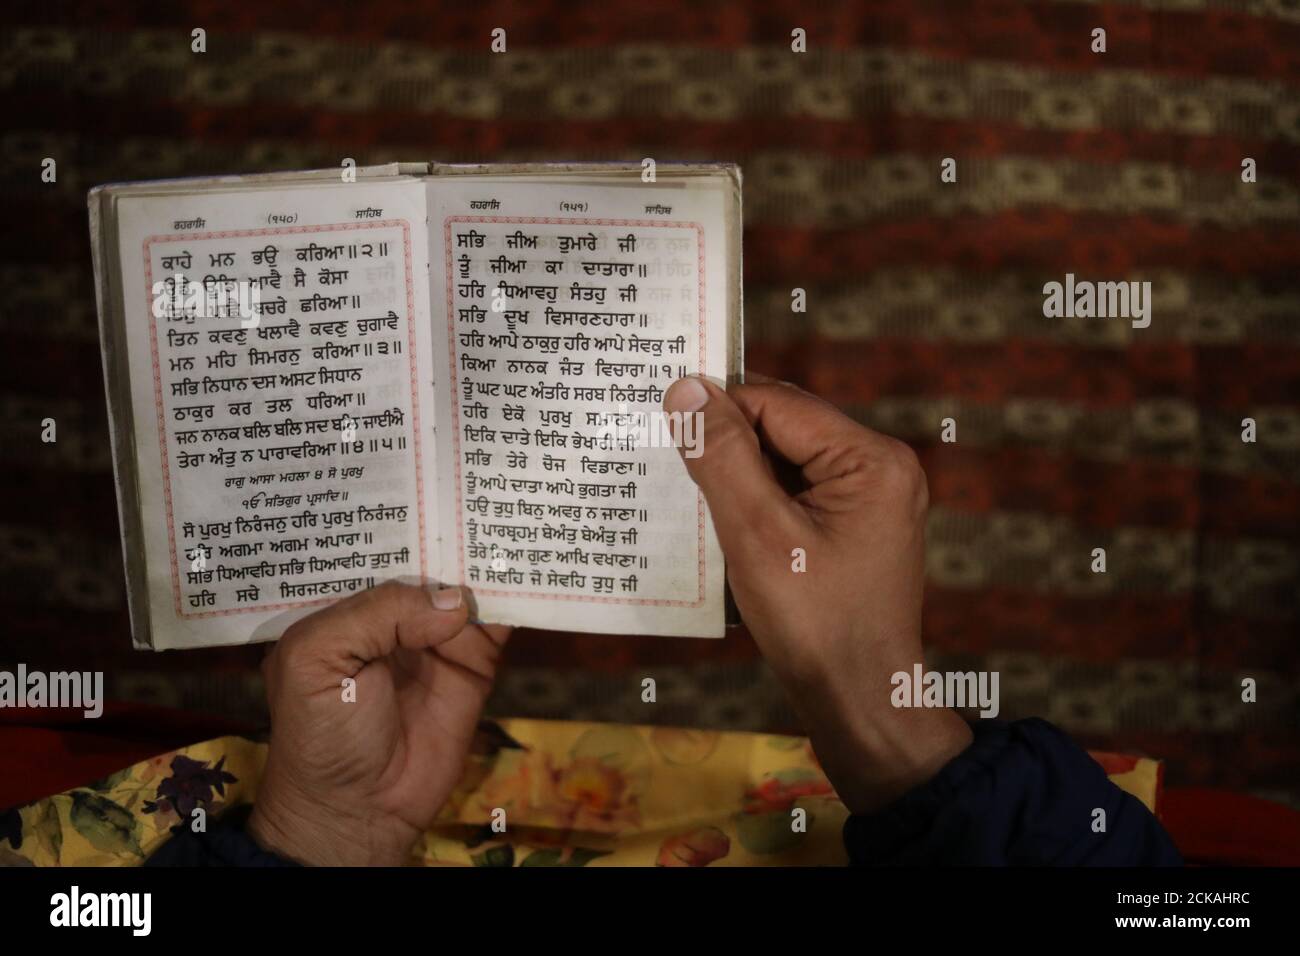 ਰਹਰਾਸਿ (੧੫੦) ਸਾਹਿਬ
ਕਾਹੇ ਮਨ ਭਉ ਕਰਿਆ॥੨॥
ਊਡੇ ਊਡਿ ਆਵੈ ਸੈ ਕੋਸਾ
ਤਿਸੁ ਪਾਛੈ ਬਚਰੇ ਛਰਿਆ॥
ਤਿਨ ਕਵਣੁ ਖਲਾਵੈ ਕਵਣੁ ਚੁਗਾਵੈ
ਮਨ ਮਹਿ ਸਿਮਰਨੁ ਕਰਿਆ॥੩॥
ਸਭਿ ਨਿਧਾਨ ਦਸ ਅਸਟ ਸਿਧਾਨ
ਠਾਕੁਰ ਕਰ ਤਲ ਧਰਿਆ॥
ਜਨ ਨਾਨਕ ਬਲਿ ਬਲਿ ਸਦ ਬਲਿ ਜਾਈਐ
ਤੇਰਾ ਅੰਤੁ ਨ ਪਾਰਾਵਰਿਆ॥੪॥੫॥
ਰਾਗੁ ਆਸਾ ਮਹਲਾ ੪ ਸੋ ਪੁਰਖੁ
ੴ ਸਤਿਗੁਰ ਪ੍ਰਸਾਦਿ॥
ਸੋ ਪੁਰਖੁ ਨਿਰੰਜਨੁ ਹਰਿ ਪੁਰਖੁ ਨਿਰੰਜਨੁ
ਹਰਿ ਅਗਮਾ ਅਗਮ ਅਪਾਰਾ॥
ਸਭਿ ਧਿਆਵਹਿ ਸਭਿ ਧਿਆਵਹਿ ਤੁਧੁ ਜੀ
ਹਰਿ ਸਚੇ ਸਿਰਜਣਹਾਰਾ॥
ਰਹਰਾਸਿ (੧੫੧) ਸਾਹਿਬ
ਸਭਿ ਜੀਅ ਤੁਮਾਰੇ ਜੀ
ਤੂੰ ਜੀਆ ਕਾ ਦਾਤਾਰਾ॥
ਹਰਿ ਧਿਆਵਹੁ ਸੰਤਹੁ ਜੀ
ਸਭਿ ਦੂਖ ਵਿਸਾਰਣਹਾਰਾ॥
ਹਰਿ ਆਪੇ ਠਾਕੁਰੁ ਹਰਿ ਆਪੇ ਸੇਵਕੁ ਜੀ
ਕਿਆ ਨਾਨਕ ਜੰਤ ਵਿਚਾਰਾ॥੧॥
ਤੂੰ ਘਟ ਘਟ ਅੰਤਰਿ ਸਰਬ ਨਿਰੰਤਰਿ
ਹਰਿ ਏਕੋ ਪੁਰਖੁ ਸਮਾਣਾ॥
ਇਕਿ ਦਾਤੇ ਇਕਿ ਭੇਖਾਰੀ ਜੀ
ਸਭਿ ਤੇਰੇ ਚੋਜ ਵਿਡਾਣਾ॥
ਤੂੰ ਆਪੇ ਦਾਤਾ ਆਪੇ ਭੁਗਤਾ ਜੀ
ਹਉ ਤੁਧੁ ਬਿਨੁ ਅਵਰੁ ਨ ਜਾਣਾ॥
ਤੂੰ ਪਾਰਬ੍ਰਹਮੁ ਬੇਅੰਤੁ ਬੇਅੰਤੁ ਜੀ
ਤੇਰੇ ਕਿਆ ਗੁਣ ਆਖਿ ਵਖਾਣਾ॥
ਜੋ ਸੇਵਹਿ ਜੋ ਸੇਵਹਿ ਤੁਧੁ ਜੀ
alamy
alamy
alamy
alamy
alamy
Image ID: 2CKAHRC
www.alamy.com